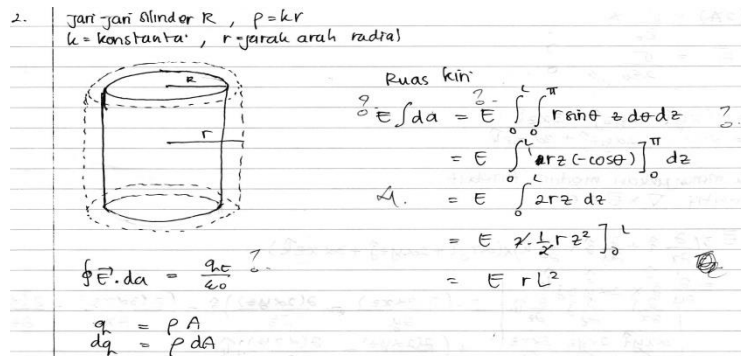 2. Jari-jari silinder R, ρ = kr
k = konstanta, r = jarak arah radial
R
r
Ruas kiri
? E ∫ da = ? E ∫₀ᴸ ∫₀^π r sin θ z dθ dz ?
= E ∫₀ᴸ rz (-cos θ) ]₀^π dz
= E ∫₀ᴸ 2rz dz
= E 2 · 1/2 r z² ]₀ᴸ
= E r L²
∮ E⃗ . da = q/ε₀ ?
q = ρ A
dq = ρ dA